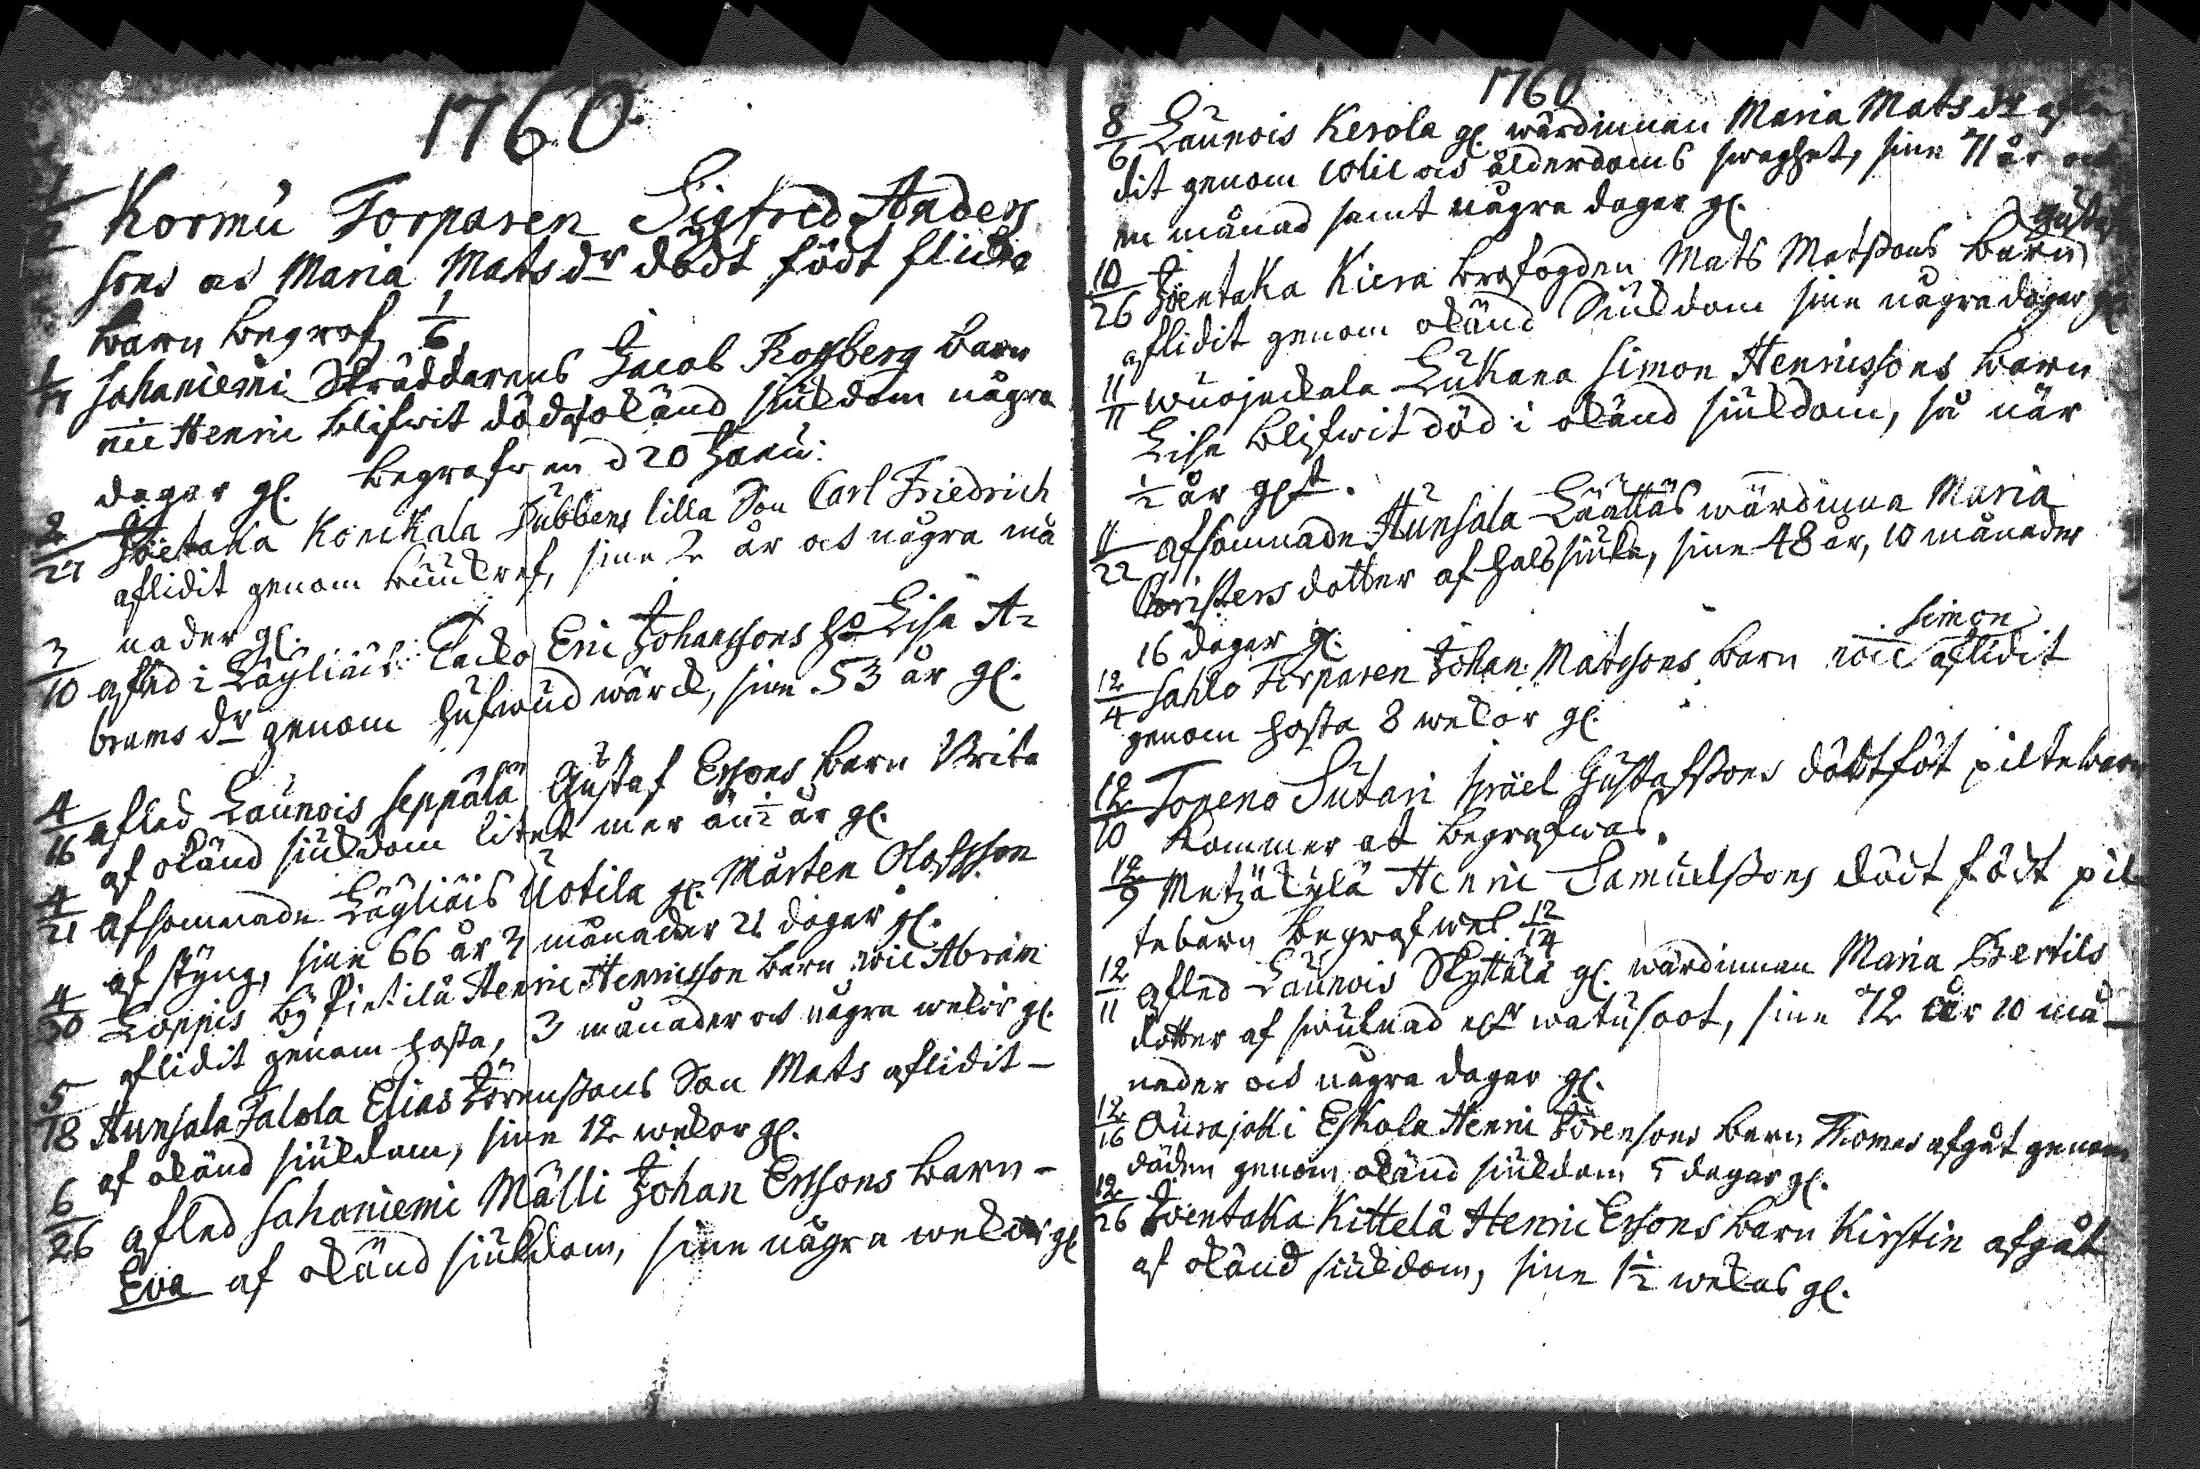 1760.
1/2 Kormu Torparen Sigfred Anders
sons och Maria Mats dr dödt födt flicko
barn begrof 1/6.
1/11 Sahaniemi Skräddarens Jacob Rosberg barn
nie Henric blifwit död af okänd siukdom några
dagar gl. begrafwen d 20 Janu:
2/27 Joentaka Konckala Dubbens lilla Son Carl Friedrich
aflidit genom bukref, sine 2 år och några må
nader gl.
3/10 afled i Läyliäis Tacko Eric Johanssons ho Lisa A=
brams dr genom hufwud wärck, sine 53 år gl.
4/16 afled Launois Seppälä Gustaf Erssons barn Brita
af okänd siukdom litet mer än 1/2 år gl.
4/21 afsomnade Läyliäis Uotila gl. Mårten Olofsson
af styng, sine 66 år 3 månader 21 dagar gl.
4/30 Loppis by Pietilä Henric Henricsson barn nie Abram
aflidit genom hosta, 3 månader och några wekor gl.
5/18 Hunsala Talola Elias Jörenssons Son Mats aflidit –
af okänd siukdom, sine 12 wekor gl.
6/26 afled Sahaniemi Mälli Johan Erssons barn –
Eva af okänd siukdom, sine några wekor gl
1760
8/6 Launois Kerola gl. wärdinnan Maria Mats dr afli
dit genom colic och ålderdoms swaghet, sine 71 år och
en månad samt några dagar gl.
Gustaf
10/26 Joentaka Kiera brofogden Mats Matssons barn
aflidit genom okänd Siukdom sine några dagar gl
11/11 Wuojackala Lukana Simon Henricssons barn
Lisa blifwit död i okänd siukdom, så när
1/2 år gl.
11/22 afsomnade Hunsala Läättäs wärdinna Maria
Christers dotter af halssiuka, sine 48 år, 10 månader
16 dagar gl.
Simon
12/4 Sahko Torparen Johan Matssons barn nie aflidit
genom hosta 8 wekor gl.
12/10 Topeno Sutari Israel Gustafssons dödtföt piltebarn
kommer at begrafwas.
12/9 Metzäkylä Henric Samuelssons dödt födt pil
tebarn begrafwet. 12/14
12/11 afled Launois Skyttälä gl. wärdinnan Maria Bertils
dotter af swulnad eller watusoot, sine 72 år 10 må–
nader och några dagar gl.
12/16 Ourajoki Eskola Henric Jörensons barn Thomas afgåt genom
döden genom okänd siukdom 5 dagar gl.
12/26 Joentaka Kittelä Henric Erssons barn Kirstin afgåt
af okänd siukdom, sine 1 1/2 wekas gl.